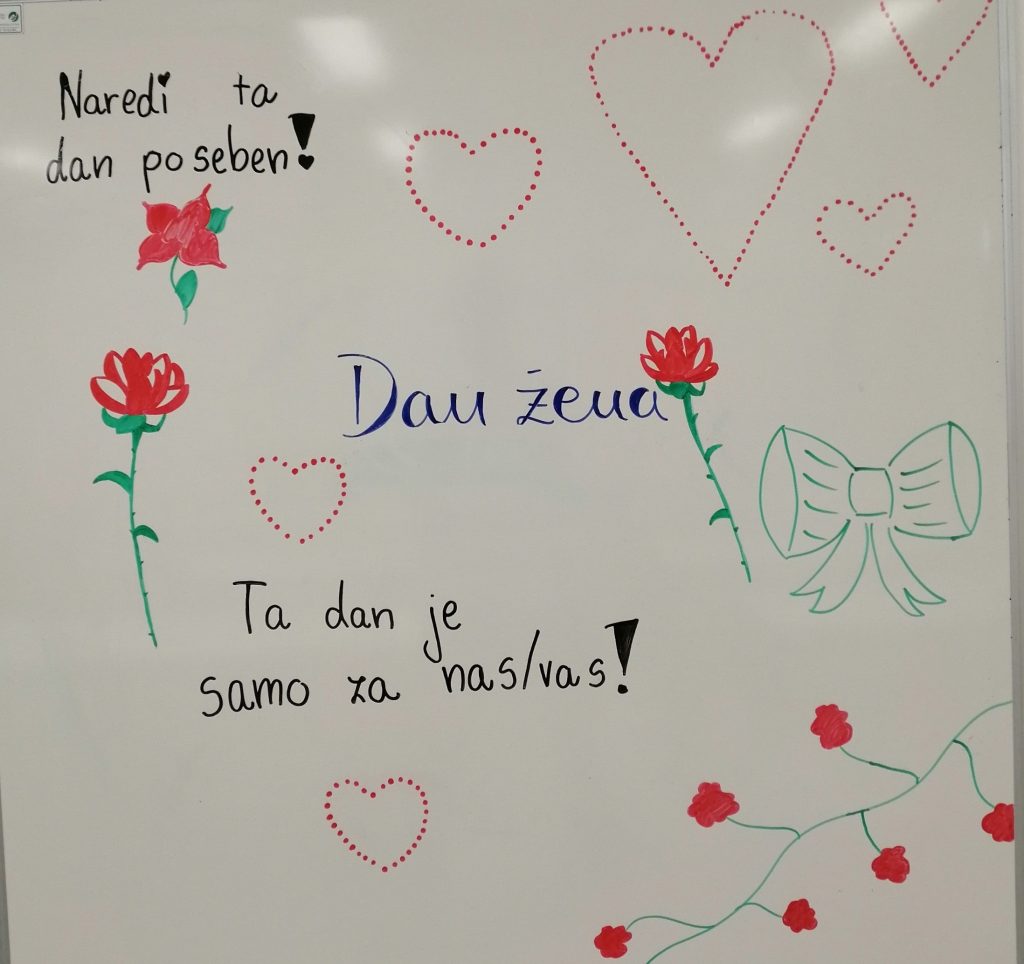 Naredi ta
dan poseben!
Dan žena
Ta dan je
samo za nas/vas!